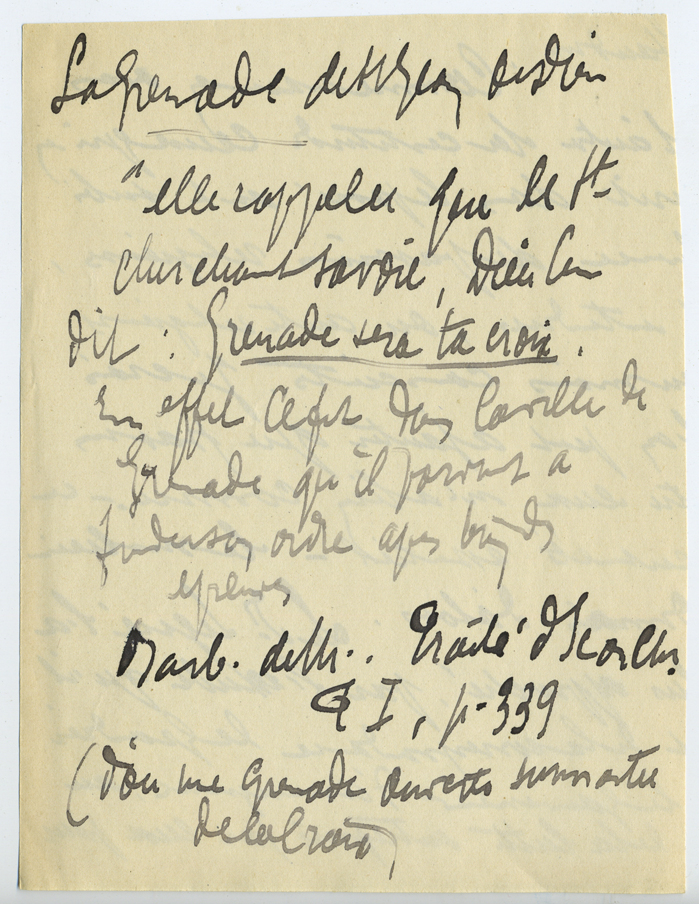 La Grenade de St Jean de Dieu
"elle rappelle que le St
cherchant sa voie, Dieu lui
dit : Grenade sera ta croix.
En effet ce fut dans la ville de
Grenade qu'il parvint a
fonder son ordre apres bien des
epreuves
Barb. de M.. Traité d'Icon. Chr.
T I, p. 339
(d'où une Grenade ouverte surmontée
de la Croix)